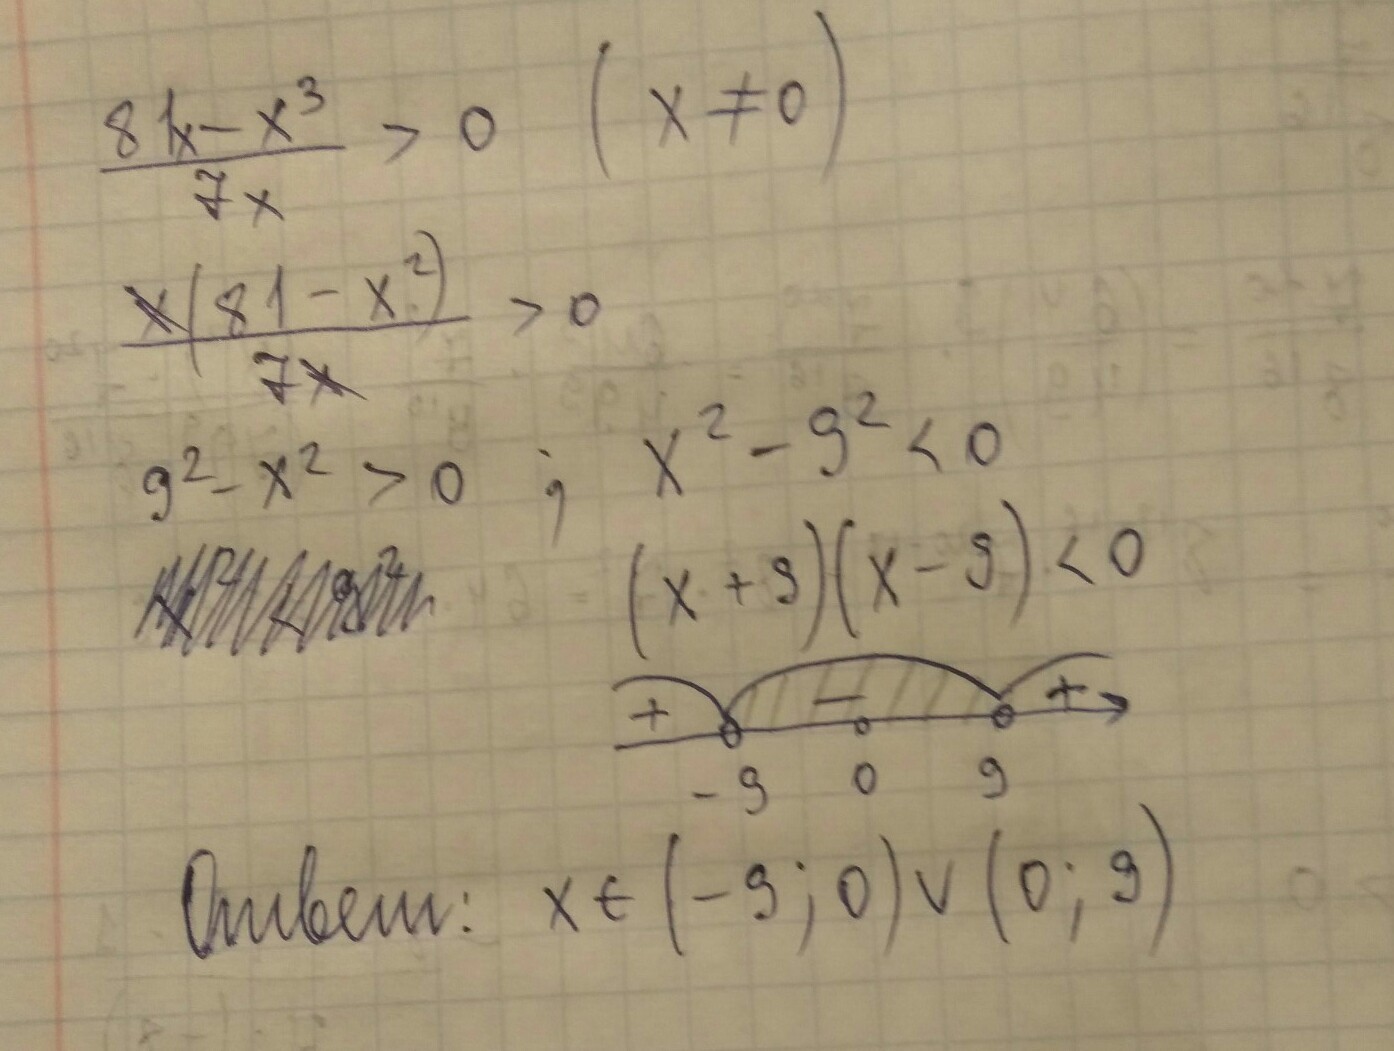 81x - x³ / 7x > 0 (x ≠ 0)
x(81 - x²) / 7x > 0
9² - x² > 0 ; x² - 9² < 0
(x + 9)(x - 9) < 0
+ − +
-9 0 9
Ответ: x ∈ (-9; 0) ∨ (0; 9)